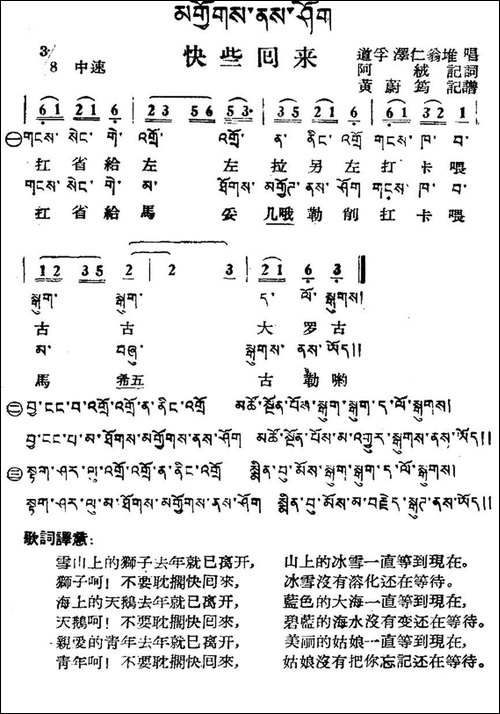 མགྱོགས་ནས་ཤོག
快些回来
道孚 澤仁翁堆 唱
3/8 中速
阿 絨 記詞
黃蔚筠 記譜
6 1 2 1 6 | 2 3 5 6 5 3· | 6 1 2 1 6 | 6 1 3 2 2
㊀གངས་སེང་གེ་འགྲོ་འགྲོ་ན་ནིང་འགྲོ གངས་ཁ་བ་
扛省給左 左拉另左打卡喂
གངས་སེང་གེ་མ་ཐོགས་མགྱོགས་ནས་ཤོག གངས་ཁ་བ་
扛省給馬 妥几哦勒削扛卡喂
1 2 3 5 2 | 2 3 | 2 1 6 3
སྒུག་ སྒུག་ ད་ལོ་སྒུགས།
古 古 大罗古
མ་ བཞུ་ སྒུགས་ནས་ཡོད།།
馬 希五 古勒喲
㊁བྱ་ངང་བ་འགྲོ་འགྲོ་ན་ནིང་འགྲོ མཚོ་སྔོན་པོས་སྒུག་སྒུག་ད་ལོ་སྒུགས།
བྱ་ངང་པ་མ་ཐོགས་མགྱོགས་ནས་ཤོག མཚོ་སྔོན་པོས་མ་འགྱུར་སྒུགས་ནས་ཡོད།།
㊂སྟག་ཤར་ལུ་འགྲོ་འགྲོ་ན་ནིང་འགྲོ སྨིན་བུ་མོས་སྒུག་སྒུག་ད་ལོ་སྒུགས།
སྟག་ཤར་ལུ་མ་ཐོགས་མགྱོགས་ནས་ཤོག སྨིན་བུ་མོས་མ་བརྗེད་སྒུག་ནས་ཡོད།།
歌詞譯意：
雪山上的獅子去年就已离开， 山上的冰雪一直等到現在。
獅子呵！不要耽擱快回來， 冰雪沒有溶化还在等待。
海上的天鵝去年就已离开， 藍色的大海一直等到現在，
天鵝呵！不要耽擱快回來， 碧藍的海水沒有变还在等待。
親愛的青年去年就已离开， 美丽的姑娘一直等到現在，
青年呵！不要耽擱快回來， 姑娘沒有把你忘記还在等待。